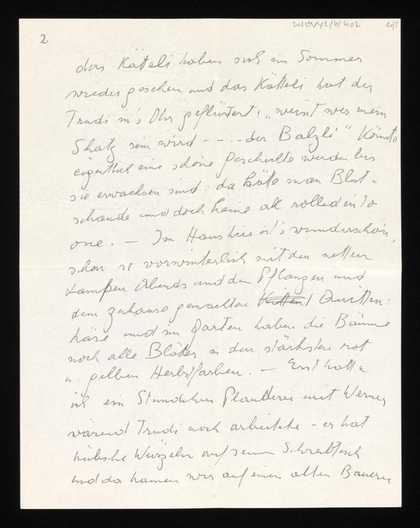 2
das Kätteli haben sich im Sommer
wieder gesehen und das Kätteli hat der
Trudi ins Ohr geflüstert: „weist wer mein
Schatz sein wird - - - - der Balzli" Könnte
eigentlich eine schöne Geschichte werden bis
sie erwachsen sind: da hätte man Blut-
schande und doch keine all rolled into
one. — Im Haus hier ist's wunderschön,
schon so vorwinterlich mit den netten
Lampen Abends und den Pflanzen und
dem zuhause gemachten Quitten-
käse und im Garten haben die Bäume
noch alle Blätter in den stärksten rot
u. gelben Herbstfarben. — Erst hatte
ich ein Stündchen Plauderei mit Werner
während Trudi noch arbeitete - er hat
hübsche Würzeln auf seinem Schreibtisch
und da kamen wir auf einen alten Bauern